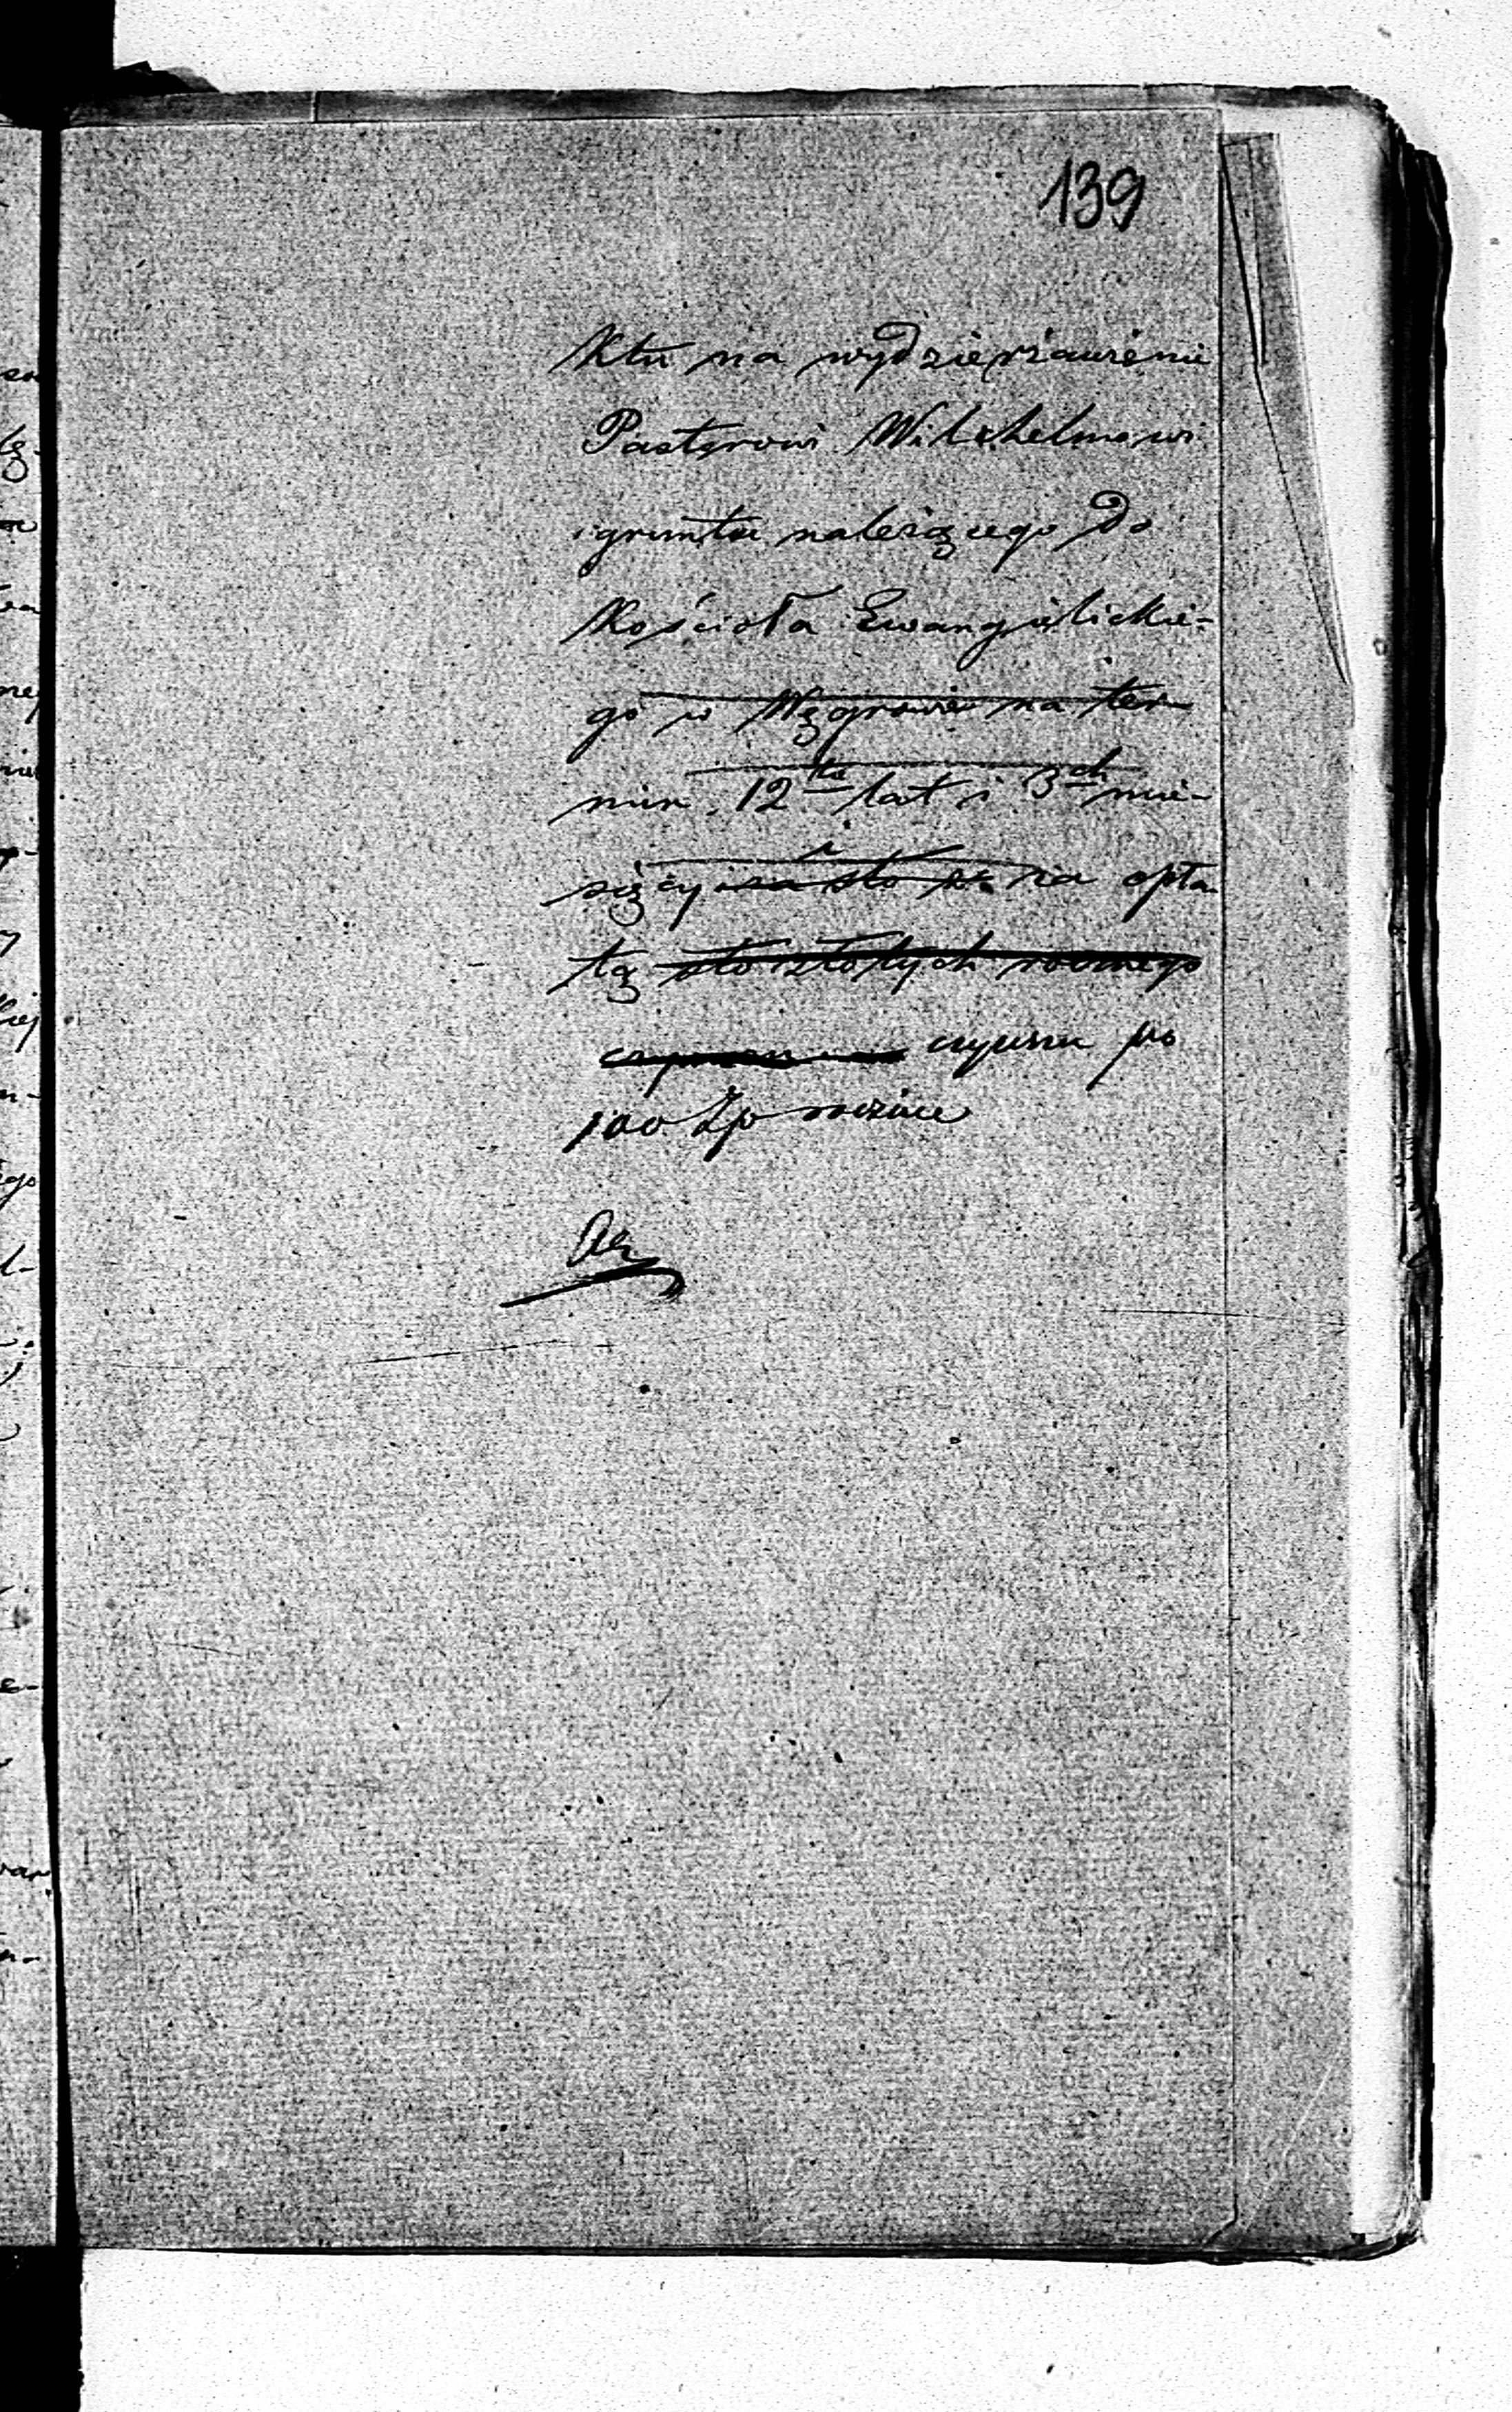 139
ktu na wydzierżawienie
Pasterowi Wilchelmowi
gruntu należącego do
Kościoła Ewangielickie-
go w Węgrowie na ter-
min 12tu lat i 3ch mie-
sięcy za sto na opła-
tą sto złotych rocznego
czynszu czynszu po
100 Zp rocznie